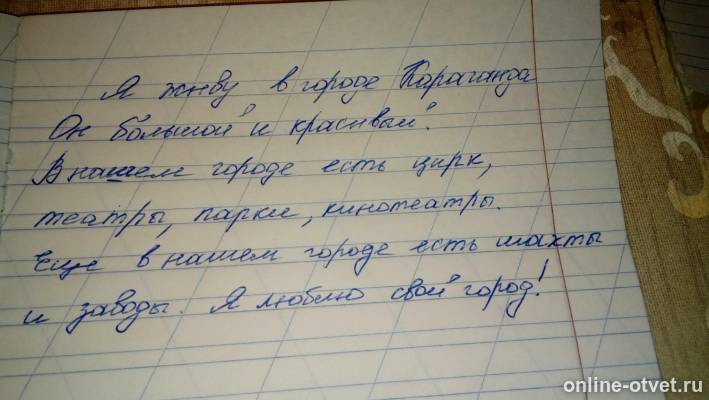 Я живу в городе Караганда
Он большой и красивый.
В нашем городе есть цирк,
театры, парки, кинотеатры.
Еще в нашем городе есть шахты
и заводы. Я люблю свой город!
online-otvet.ru